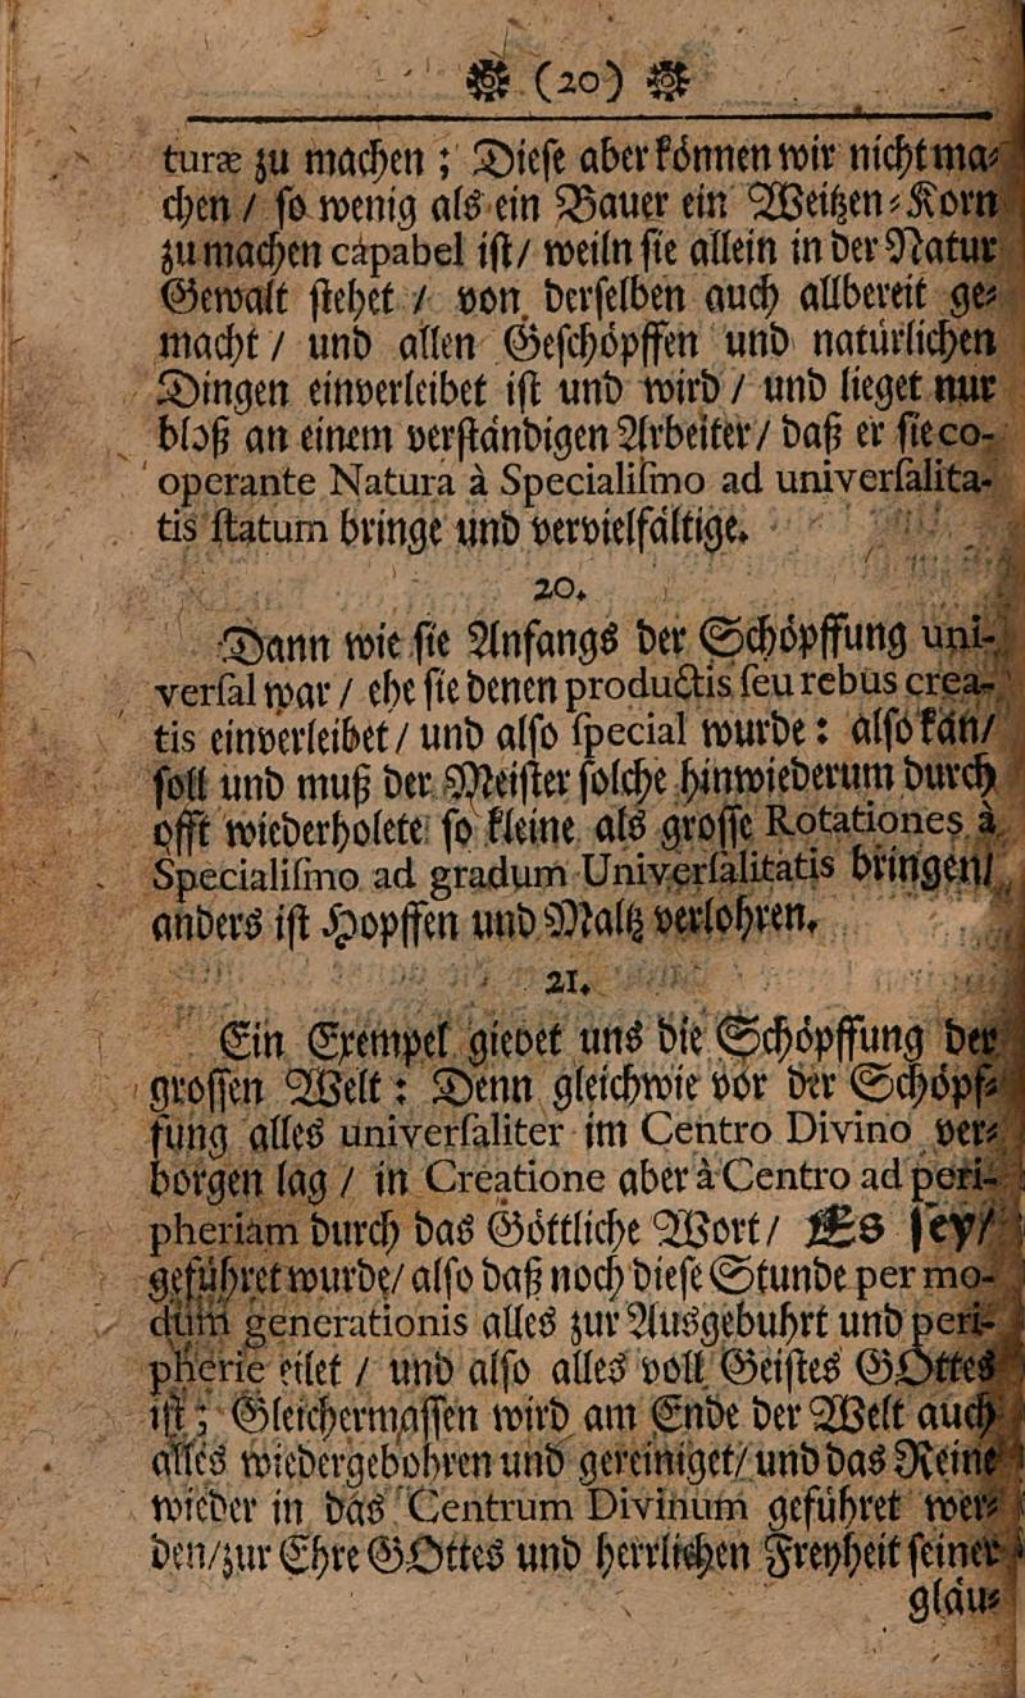 (20)
turæ zu machen ; Diese aber können wir nicht ma-
chen / so wenig als ein Bauer ein Weitzen-Korn
zu machen capabel ist / weiln sie allein in der Natur
Gewalt stehet / von derselben auch allbereit ge-
macht / und allen Geschöpffen und natürlichen
Dingen einverleibet ist und wird / und lieget nur
bloß an einem verständigen Arbeiter / daß er sie co-
operante Natura à Specialiſmo ad univerſalita-
tis ſtatum bringe und vervielfältige.
20.
Dann wie sie Anfangs der Schöpffung uni-
verſal war / ehe sie denen productis ſeu rebus crea-
tis einverleibet / und also ſpecial wurde : also kan /
soll und muß der Meister solche hinwiederum durch
offt wiederholete so kleine als grosse Rotationes à
Specialiſmo ad gradum Univerſalitatis bringen /
anders ist Hopffen und Maltz verlohren.
21.
Ein Exempel giebet uns die Schöpffung der
grossen Welt : Denn gleichwie vor der Schöpf-
fung alles univerſaliter im Centro Divino ver-
borgen lag / in Creatione aber à Centro ad peri-
pheriam durch das Göttliche Wort / Es sey /
geführet wurde / also daß noch diese Stunde per mo-
dum generationis alles zur Ausgebuhrt und peri-
pherie eilet / und also alles voll Geistes GOttes
ist ; Gleichermassen wird am Ende der Welt auch
alles wiedergebohren und gereiniget / und das Reine
wieder in das Centrum Divinum geführet wer-
den / zur Ehre GOttes und herrlichen Freyheit seiner
gläu-